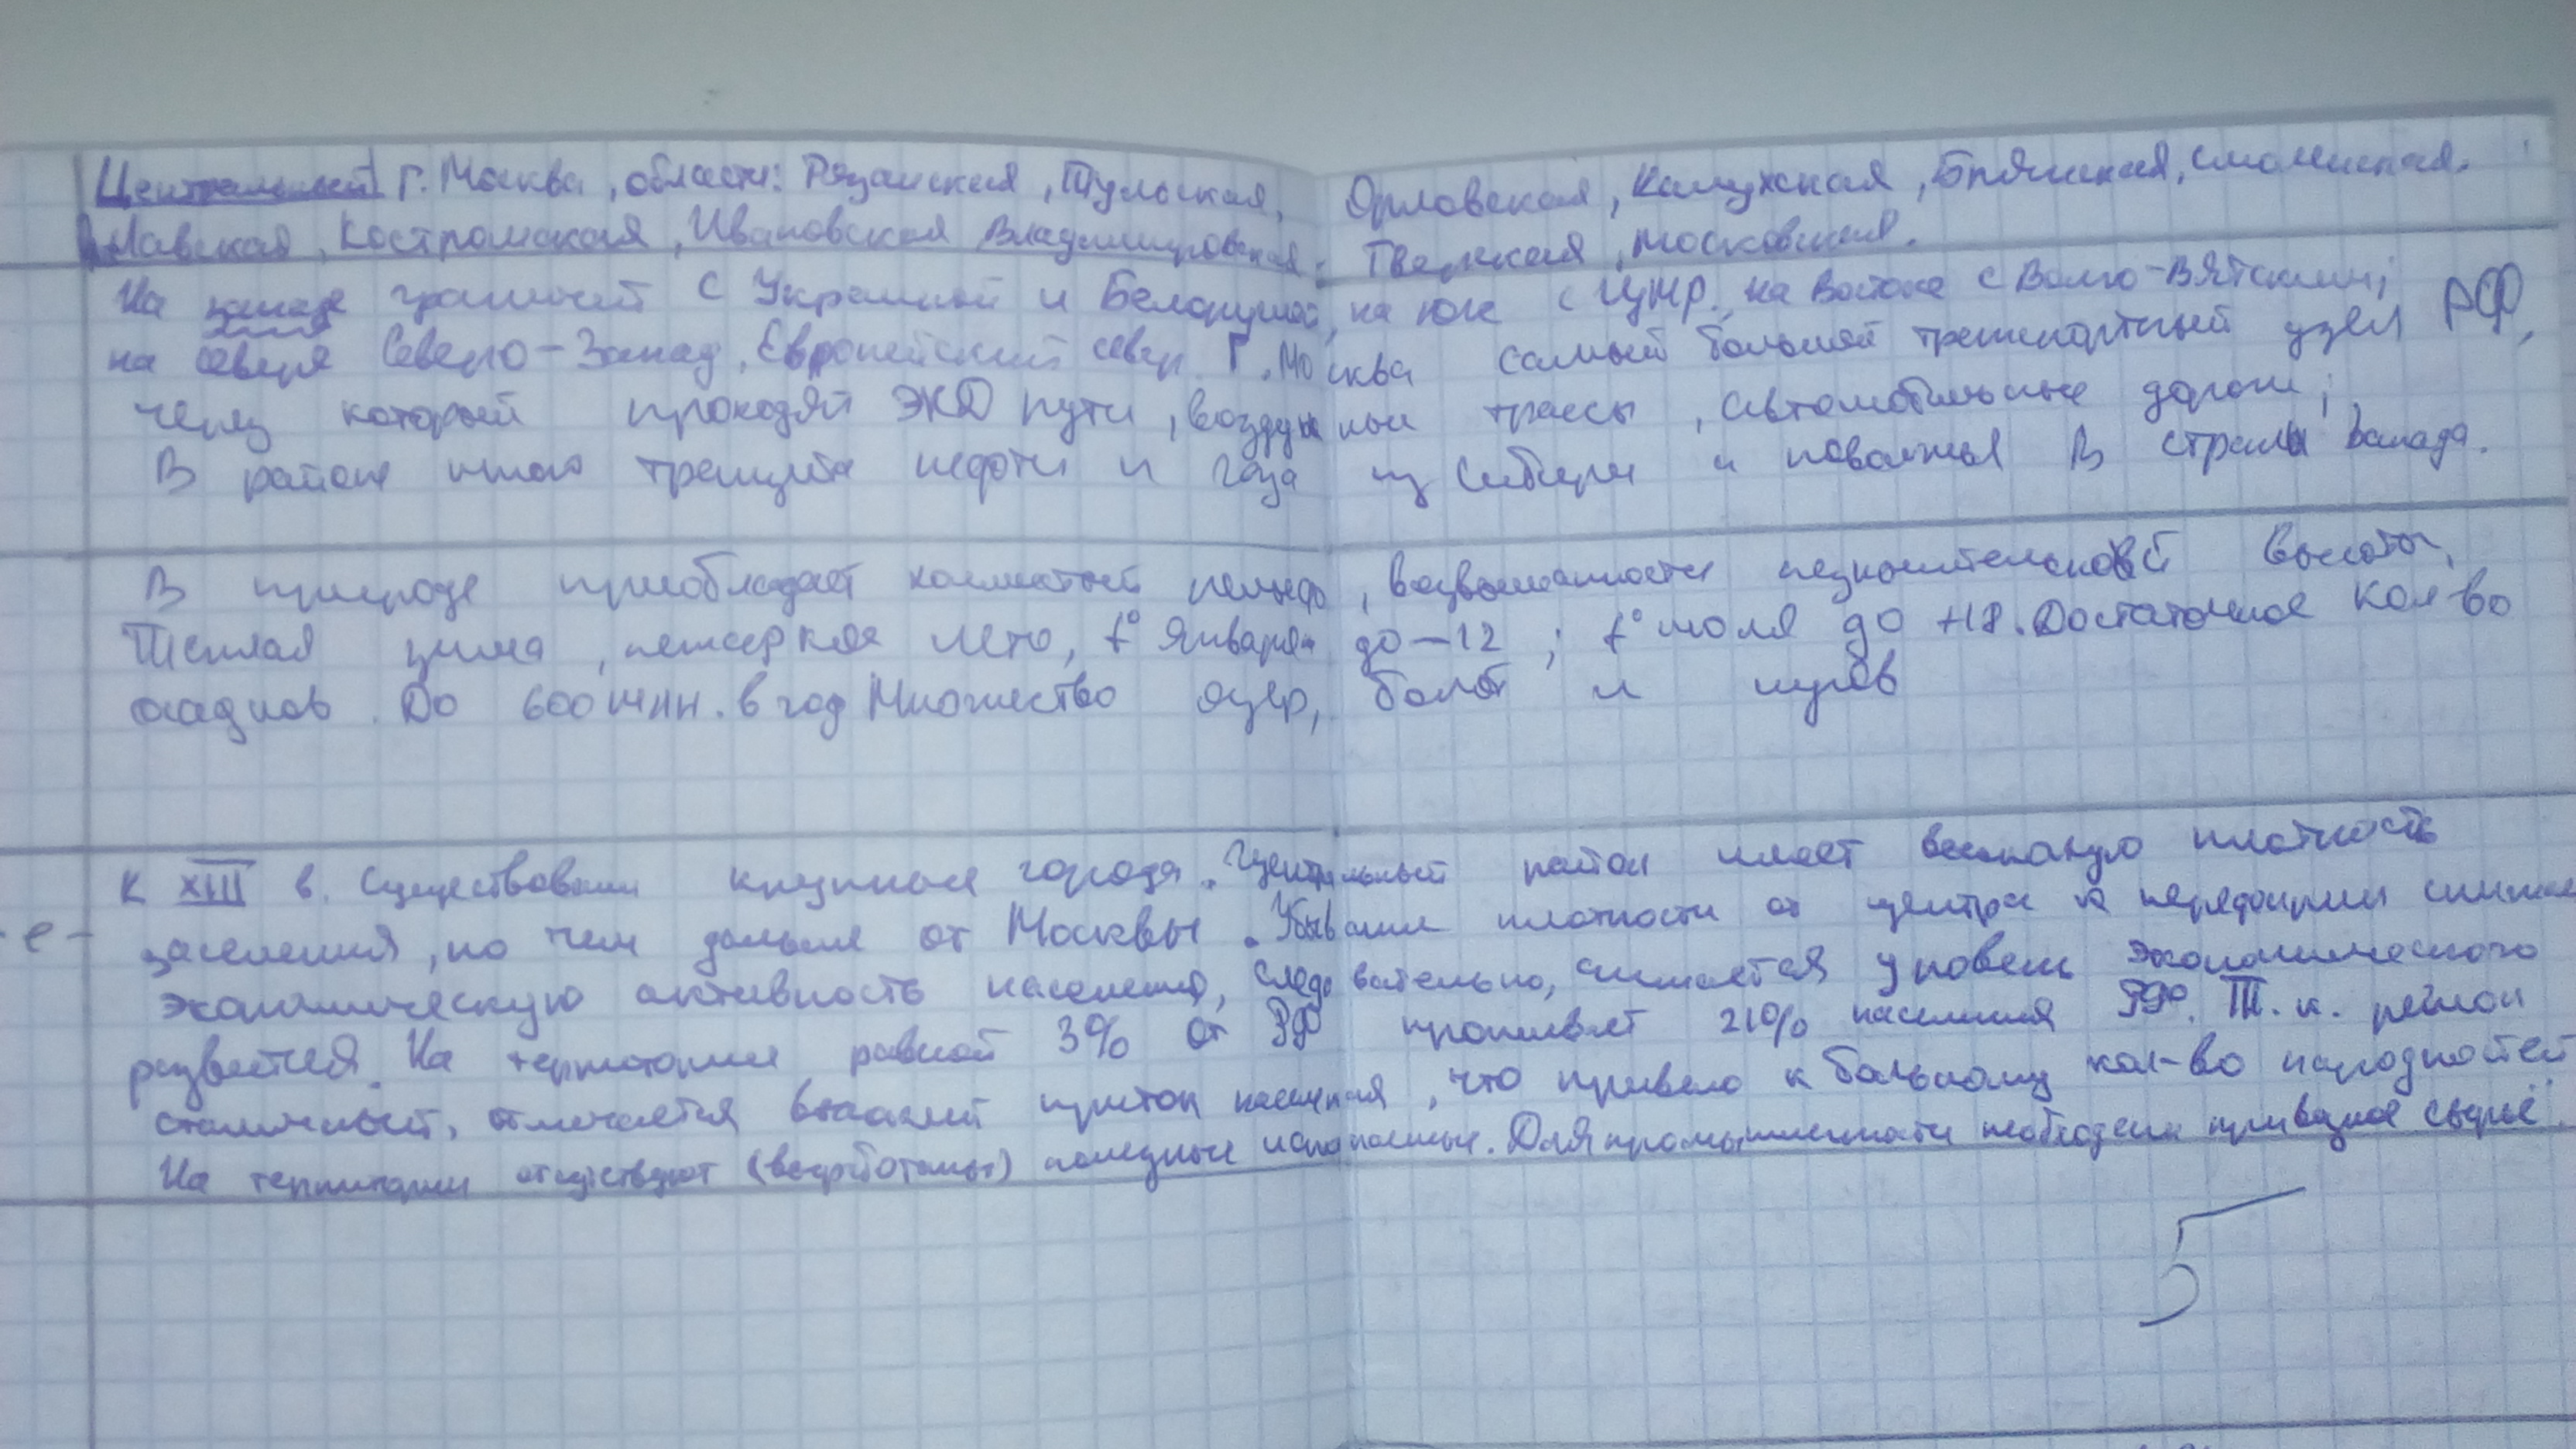 Центральный г. Москва, области: Рязанская, Тульская, Орловская, Калужская, Брянская, Смоленская.
Костромская, Ивановская Владимировская, Тверская, Московская.
На западе граничит с Украиной и Белорусией, на юге с ЦЧР, на востоке с Волго-Вятским;
на севере Северо-Запад, Европейский север. Г. Москва самый большой транспортный узел РФ,
через который проходят ЖД пути, воздушные трассы, автомобильные дороги;
В районе транзита нефти и газа из Сибири и поволжья в страны Запада.
В природе приобладает холмистый рельеф, возвышенности незначительной высоты.
Тёплая зима, нежаркое лето, t° Января до -12; t° июля до +18. Достаточное кол во
осадков. До 600 мм. в год Множество озер, болот и
К XIII в. Существовали крупные города. Центральный район имеет высокую плотность
- е - заселения, но чем дальше от Москвы. Убывание плотности от центра к переферии
экономическую активность населения, следовательно, снижается уровень экономического
развития. На территории равной 3% от РФ проживает 21% населения РФ. Т.к. район
столичный, отмечается высокий приток населения, что привело к большому кол-во народностей
На территории отсутствуют (выработаны) полезные ископаемые. Для промышленности необходимо привозное сырьё.
5